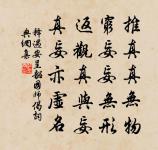 推真真無物
窮妄妄無形
返觀真與妄
真妄亦虛名
釋遇安呈韶國師偈詞
典網集